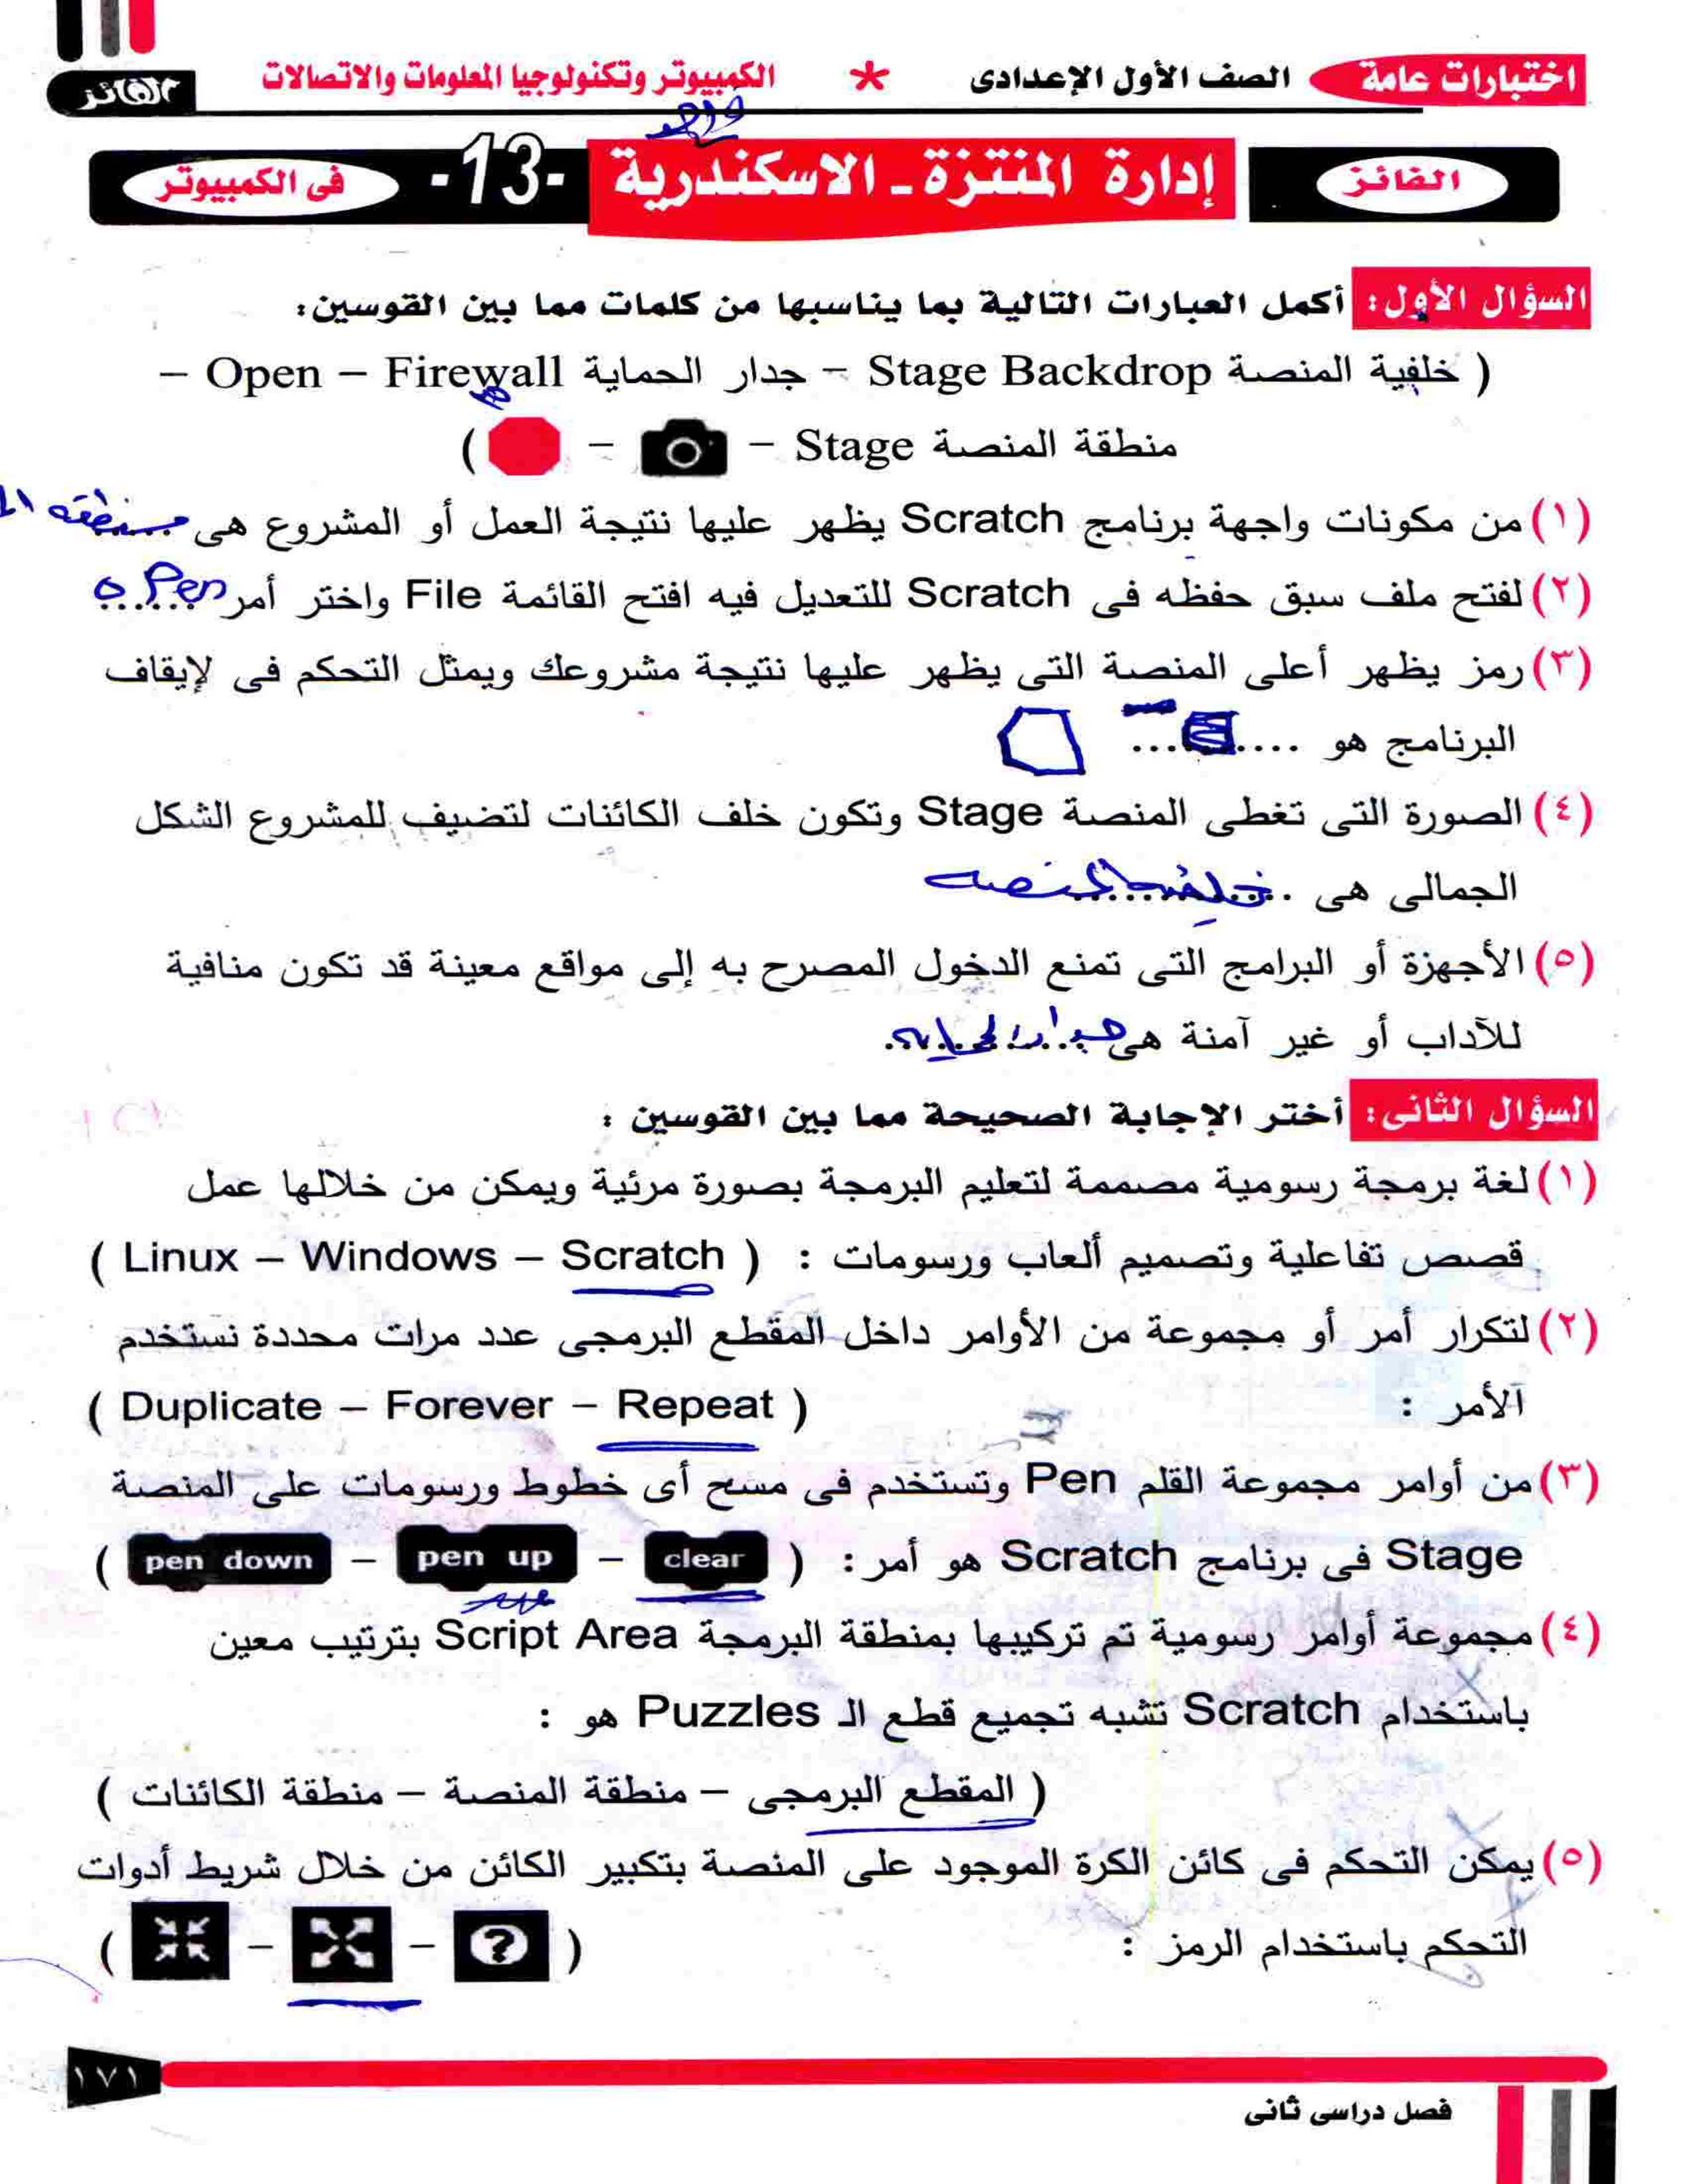 اختبارات عامة الصف الأول الإعدادى * الكمبيوتر وتكنولوجيا المعلومات والاتصالات الفائز
الفائز إدارة المنتزة ـ الاسكندرية -13- فى الكمبيوتر
السؤال الأول: أكمل العبارات التالية بما يناسبها من كلمات مما بين القوسين:
( خلفية المنصة Stage Backdrop – جدار الحماية Open – Firewall –
منطقة المنصة Stage – – )
(١) من مكونات واجهة برنامج Scratch يظهر عليها نتيجة العمل أو المشروع هى منطقه ال
(٢) لفتح ملف سبق حفظه فى Scratch للتعديل فيه افتح القائمة File واختر أمر open
(٣) رمز يظهر أعلى المنصة التى يظهر عليها نتيجة مشروعك ويمثل التحكم فى لإيقاف
البرنامج هو ............
(٤) الصورة التى تغطى المنصة Stage وتكون خلف الكائنات لتضيف للمشروع الشكل
الجمالى هى خلفيه المنصه
(٥) الأجهزة أو البرامج التى تمنع الدخول المصرح به إلى مواقع معينة قد تكون منافية
للآداب أو غير آمنة هى جدار الحمايه
السؤال الثانى: أختر الإجابة الصحيحة مما بين القوسين :
(١) لغة برمجة رسومية مصممة لتعليم البرمجة بصورة مرئية ويمكن من خلالها عمل
قصص تفاعلية وتصميم ألعاب ورسومات : ( Linux – Windows – Scratch )
(٢) لتكرار أمر أو مجموعة من الأوامر داخل المقطع البرمجى عدد مرات محددة نستخدم
الأمر : ( Duplicate – Forever – Repeat )
(٣) من أوامر مجموعة القلم Pen وتستخدم فى مسح أى خطوط ورسومات على المنصة
Stage فى برنامج Scratch هو أمر : ( clear – pen up – pen down )
(٤) مجموعة أوامر رسومية تم تركيبها بمنطقة البرمجة Script Area بترتيب معين
باستخدام Scratch تشبه تجميع قطع الـ Puzzles هو :
( المقطع البرمجى – منطقة المنصة – منطقة الكائنات )
(٥) يمكن التحكم فى كائن الكرة الموجود على المنصة بتكبير الكائن من خلال شريط أدوات
التحكم باستخدام الرمز : ( ? – – )
١٧١
فصل دراسى ثانى